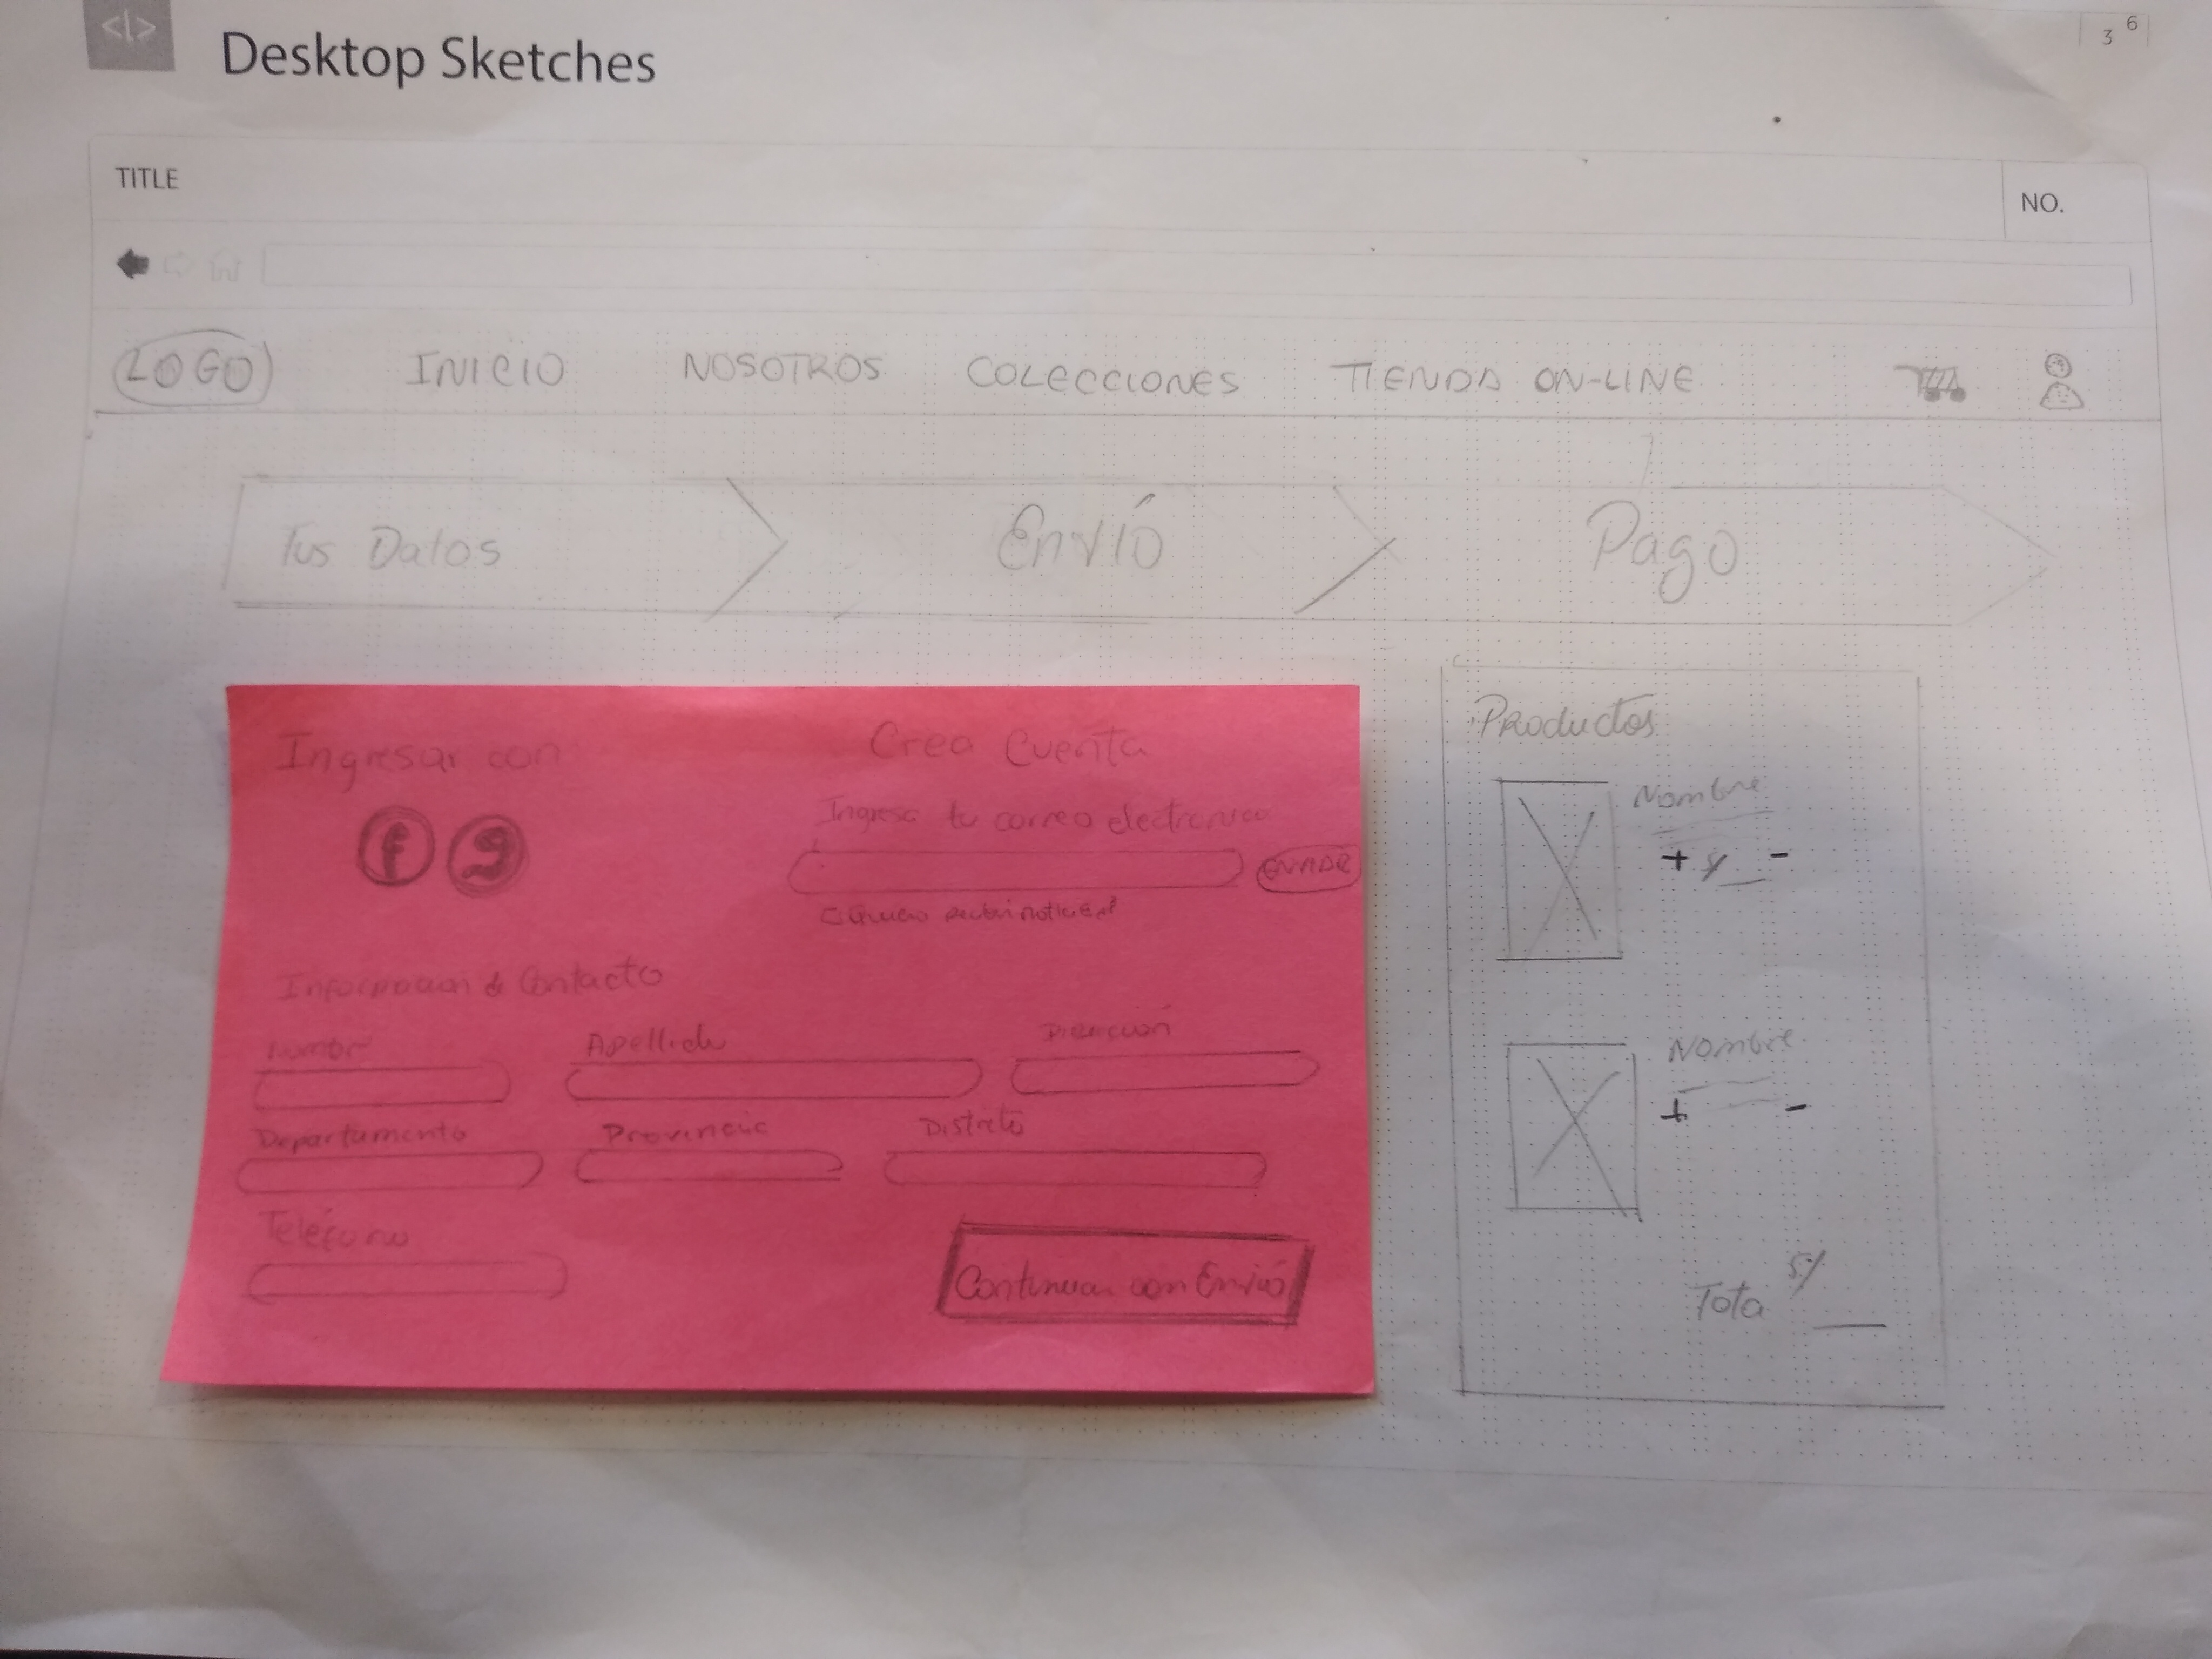 <l>
Desktop Sketches
3 6
TITLE
NO.
LOGO INICIO NOSOTROS COLECCIONES TIENDA ON-LINE
Tus Datos Envíó Pago
Ingresar con Crea Cuenta
Ingresa tu correo electronico
f g
ENVIAR
Quiero recibir noticias
Informacion de Contacto
Apellido Dirección
Departamento Provincia Distrito
Teléfono
Continuar con Envió
Productos
Nombre
+ -
Nombre
+ -
S/
Tota